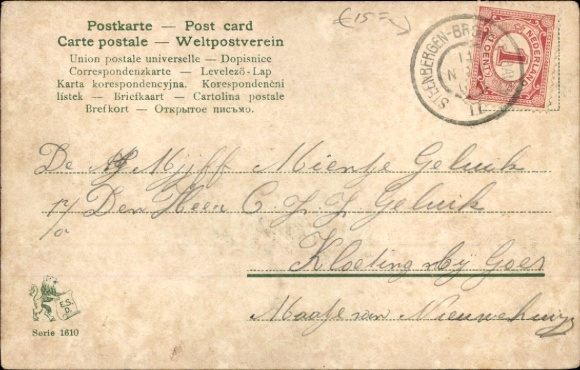 €15=
Postkarte — Post card
Carte postale — Weltpostverein
Union postale universelle — Dopisnice
Correspondenzkarte — Levelező-Lap
Karta korespondencyjna. Korespondenční
lístek — Briefkaart — Cartolina postale
Brefkort — Открытое письмо.
STEENBERGEN-BR
NEDERLAND
1
CENT
De Mejff Mientje Geluik
p/a Den Heer C. J. J. Geluik
Kloetinge bij Goes
Maatje van Nieuwenhuyze
Serie 1610